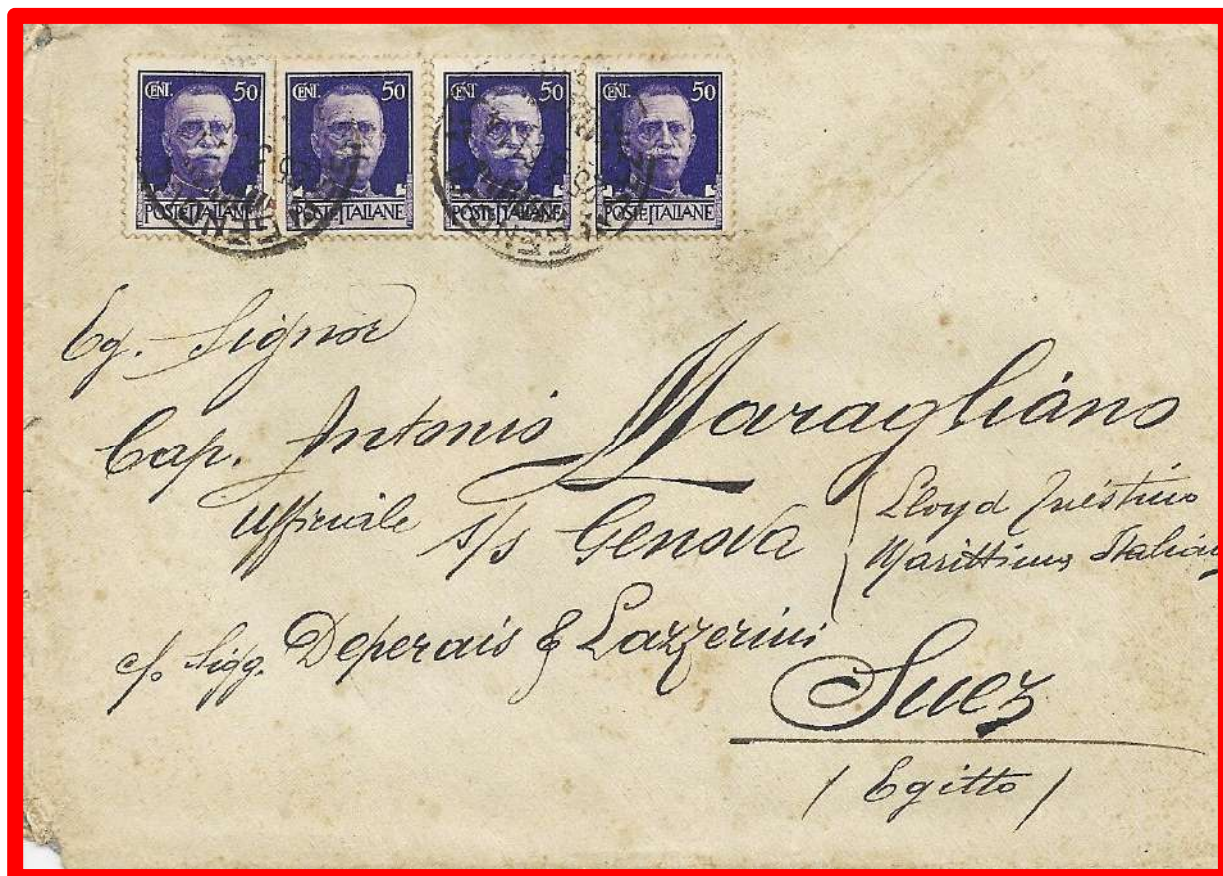 CENT. 50 CENT. 50 CENT. 50 CENT. 50
POSTE ITALIANE POSTE ITALIANE POSTE ITALIANE POSTE ITALIANE
GENOVA
Eg. Signor
Cap. Antonio Maragliano
Ufficiale s/s Genova
Lloyd Triestino
Marittima Italiana
c/o Sigg. Deperais & Lazzerini
Suez
(Egitto)